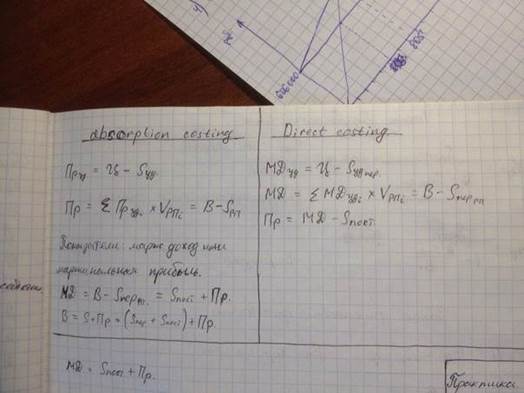 absorption costing
Пр уд = Ц - S уд.
Пр = Σ Пр удi × V РПi = В - S рп
Показатели: марж. доход или
маржинальная прибыль.
МД = В - S пер рп. = S пост + Пр.
В = S + Пр = (S пер + S пост) + Пр.
МД = S пост + Пр.
Direct costing
МД уд = Ц - S уд пер.
МД = Σ МД удi × V РПi = В - S пер рп
Пр = МД - S пост.
Практика